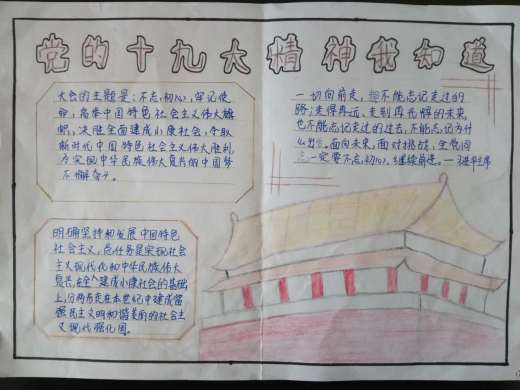 党的十九大精神我知道
大会的主题是：不忘初心，牢记使
命，高举中国特色社会主义伟大旗
帜，决胜全面建成小康社会，夺取
新时代中国特色社会主义伟大胜利
为实现中华民族伟大复兴的中国梦
不懈奋斗。
一切向前走，都不能忘记走过的
路；走得再远、走到再光辉的未来
也不能忘记走过的过去，不能忘记为什
么出发。面向未来，面对挑战，全党同
志一定要不忘初心、继续前进。—习近平主席
明确坚持和发展中国特色
社会主义，总任务是实现社会
主义现代化和中华民族伟大
复兴，在全面建成小康社会的基础
上，分两步走在本世纪中建成富
强民主文明和谐美丽的社会主
义现代强化国。